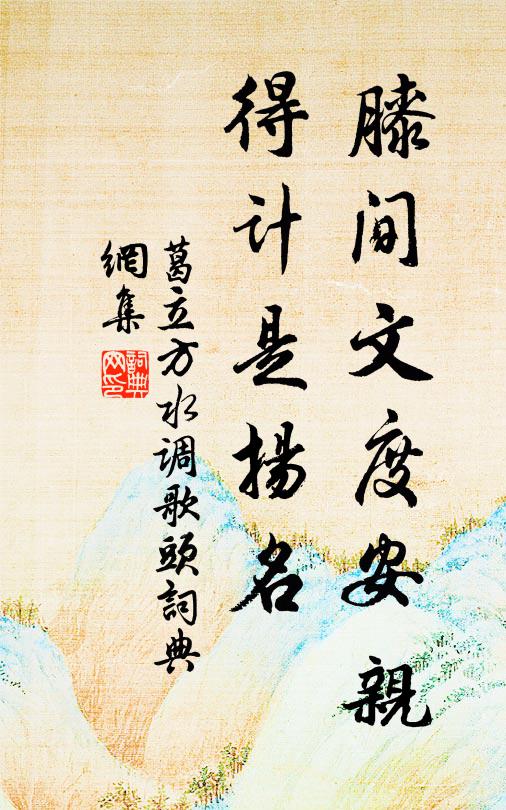 膝间文度安親
得计是揚名
葛立方水调歌頭詞典
網集
詞典网印